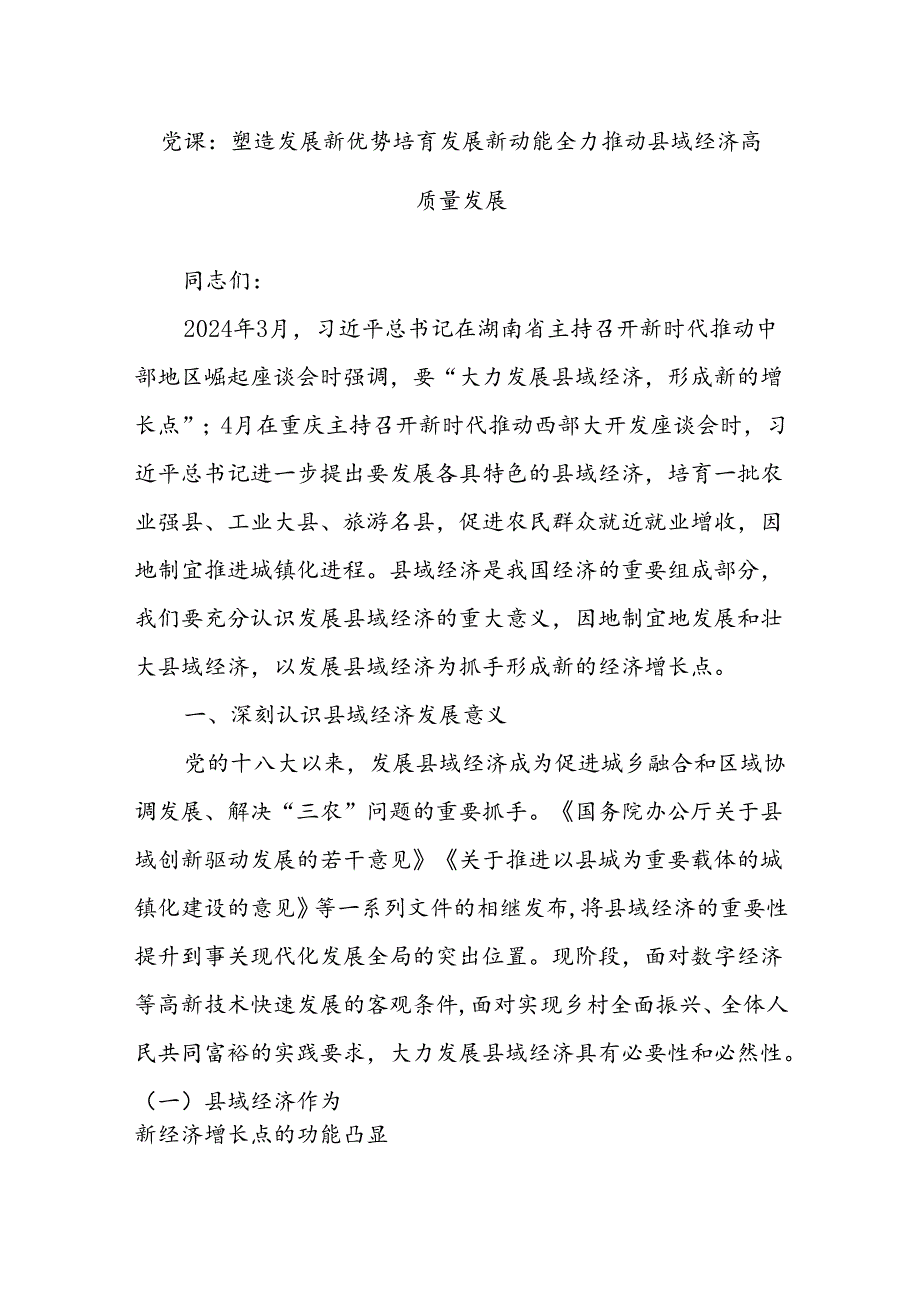 党课：塑造发展新优势培育发展新动能全力推动县域经济高
质量发展
同志们：
2024年3月，习近平总书记在湖南省主持召开新时代推动中
部地区崛起座谈会时强调，要“大力发展县域经济，形成新的增
长点”；4月在重庆主持召开新时代推动西部大开发座谈会时，习
近平总书记进一步提出要发展各具特色的县域经济，培育一批农
业强县、工业大县、旅游名县，促进农民群众就近就业增收，因
地制宜推进城镇化进程。县域经济是我国经济的重要组成部分，
我们要充分认识发展县域经济的重大意义，因地制宜地发展和壮
大县域经济，以发展县域经济为抓手形成新的经济增长点。
一、深刻认识县域经济发展意义
党的十八大以来，发展县域经济成为促进城乡融合和区域协
调发展、解决“三农”问题的重要抓手。《国务院办公厅关于县
域创新驱动发展的若干意见》《关于推进以县城为重要载体的城
镇化建设的意见》等一系列文件的相继发布,将县域经济的重要性
提升到事关现代化发展全局的突出位置。现阶段，面对数字经济
等高新技术快速发展的客观条件,面对实现乡村全面振兴、全体人
民共同富裕的实践要求，大力发展县域经济具有必要性和必然性。
（一）县域经济作为
新经济增长点的功能凸显